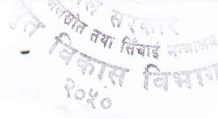 सरकार
जलस्रोत तथा सिंचाई मन्त्रालय
विकास विभाग
२०५०